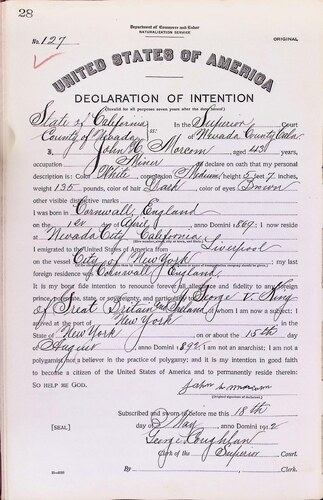 28
Department of Commerce and Labor
NATURALIZATION SERVICE
No. 127
ORIGINAL
UNITED STATES OF AMERICA
DECLARATION OF INTENTION
(Invalid for all purposes seven years after the date hereof)
State of California In the Superior Court
County of Nevada ss: of Nevada County, Cala.
I, John W. Morcom aged 43 years,
occupation Miner, do declare on oath that my personal
description is: Color White, complexion Medium, height 5 feet 7 inches,
weight 135 pounds, color of hair Dark, color of eyes Brown
other visible distinctive marks
I was born in Cornwall, England
on the day of April, anno Domini 1869; I now reside
at Nevada City, California.
I emigrated to the United States of America from Liverpool
on the vessel City of New York; my last
foreign residence was Cornwall, England.
It is my bona fide intention to renounce forever all allegiance and fidelity to any foreign
prince, potentate, state, or sovereignty, and particularly to George V. King
of Great Britain and Ireland, of whom I am now a subject; I
arrived at the port of New York, in the
State of New York on or about the 15th day
of August, anno Domini 1892; I am not an anarchist; I am not a
polygamist nor a believer in the practice of polygamy; and it is my intention in good faith
to become a citizen of the United States of America and to permanently reside therein:
SO HELP ME GOD.
John W. Morcom
(Original signature of declarant)
Subscribed and sworn to before me this 18th
[SEAL] day of May, anno Domini 1912
George L. Coughlan
Clerk of the Superior Court.
By, Clerk.